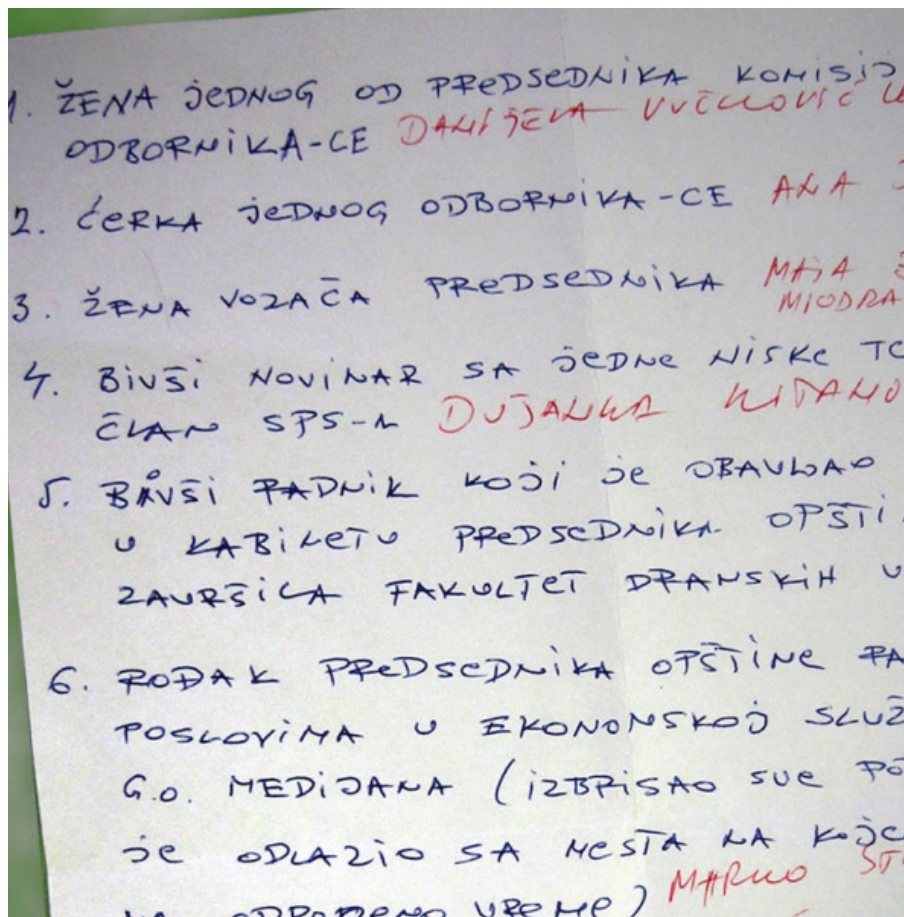 1. ŽENA JEDNOG OD PREDSEDNIKA KOMISIJ
ODBORNIKA-CE DANIJELA VUČKOVIĆ
2. ĆERKA JEDNOG ODBORNIKA-CE ANA
3. ŽENA VOZAČA PREDSEDNIKA MAJA
MIODRA
4. BIVŠI NOVINAR SA JEDNE NISKE
ČLAN SPS-A
5. BIVŠI RADNIK KOJI JE OBAVLJAO
U KABINETU PREDSEDNIKA OPŠTI
ZAVRŠILA FAKULTET DRAMSKIH U
6. ROĐAK PREDSEDNIKA OPŠTINE RA
POSLOVIMA U EKONOMSKOJ SLUŽ
G.O. MEDIJANA (IZBRISAO SVE PO
JE ODLAZIO SA MESTA NA KOJE
NA ODREĐENO VREME) MARKO